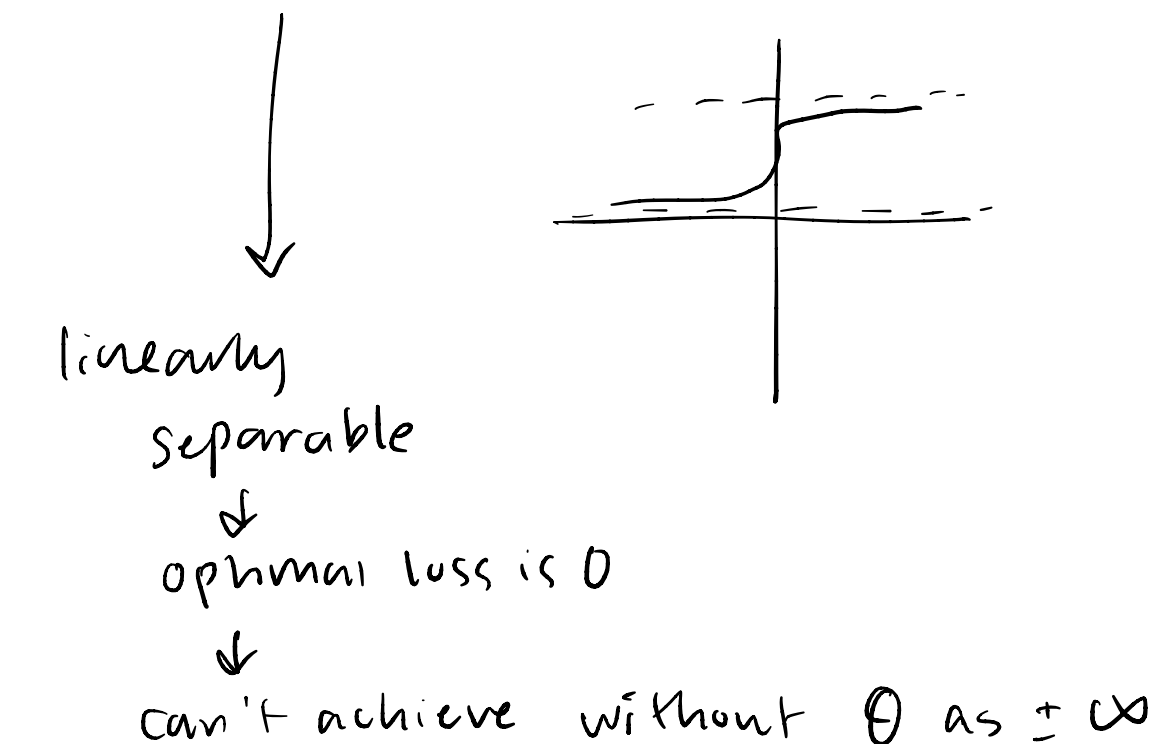 linearly
separable
↓
optimal loss is 0
↓
can't achieve without θ as ± ∞